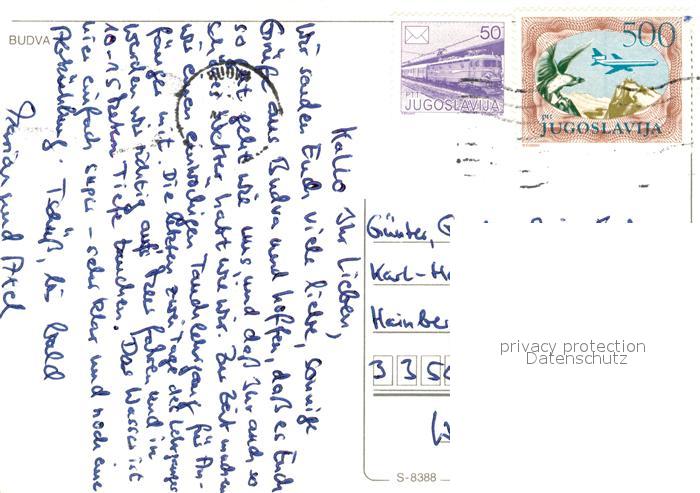 BUDVA
Hallo Ihr Lieben,
wir senden Euch viele liebe, sonnige
Grüße aus Budva und hoffen, daß es Euch
so gut geht wie uns und daß Ihr auch so
schönes Wetter habt wie wir. Zur Zeit machen
wir einen einwöchigen Tauchlehrgang für An-
fänger mit. Die letzten zwei Tage des Lehrganges
werden wir richtig aufs Meer fahren und in
10-15 Metern Tiefe tauchen. Das Wasser ist
hier einfach super - sehr klar und noch eine
Abkühlung. Tschüß, bis bald
Marian und Axel
BUDVA
50
PTT
JUGOSLAVIJA
500
PTT
JUGOSLAVIJA
Günter, G
Karl-Ma
Hainber
335
S-8388
privacy protection
Datenschutz